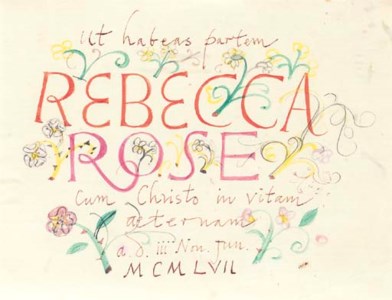 Ut habeas partem
REBECCA
ROSE
cum Christo in vitam
aeternam
a. d. iii Non. Jun.
MCMLVII